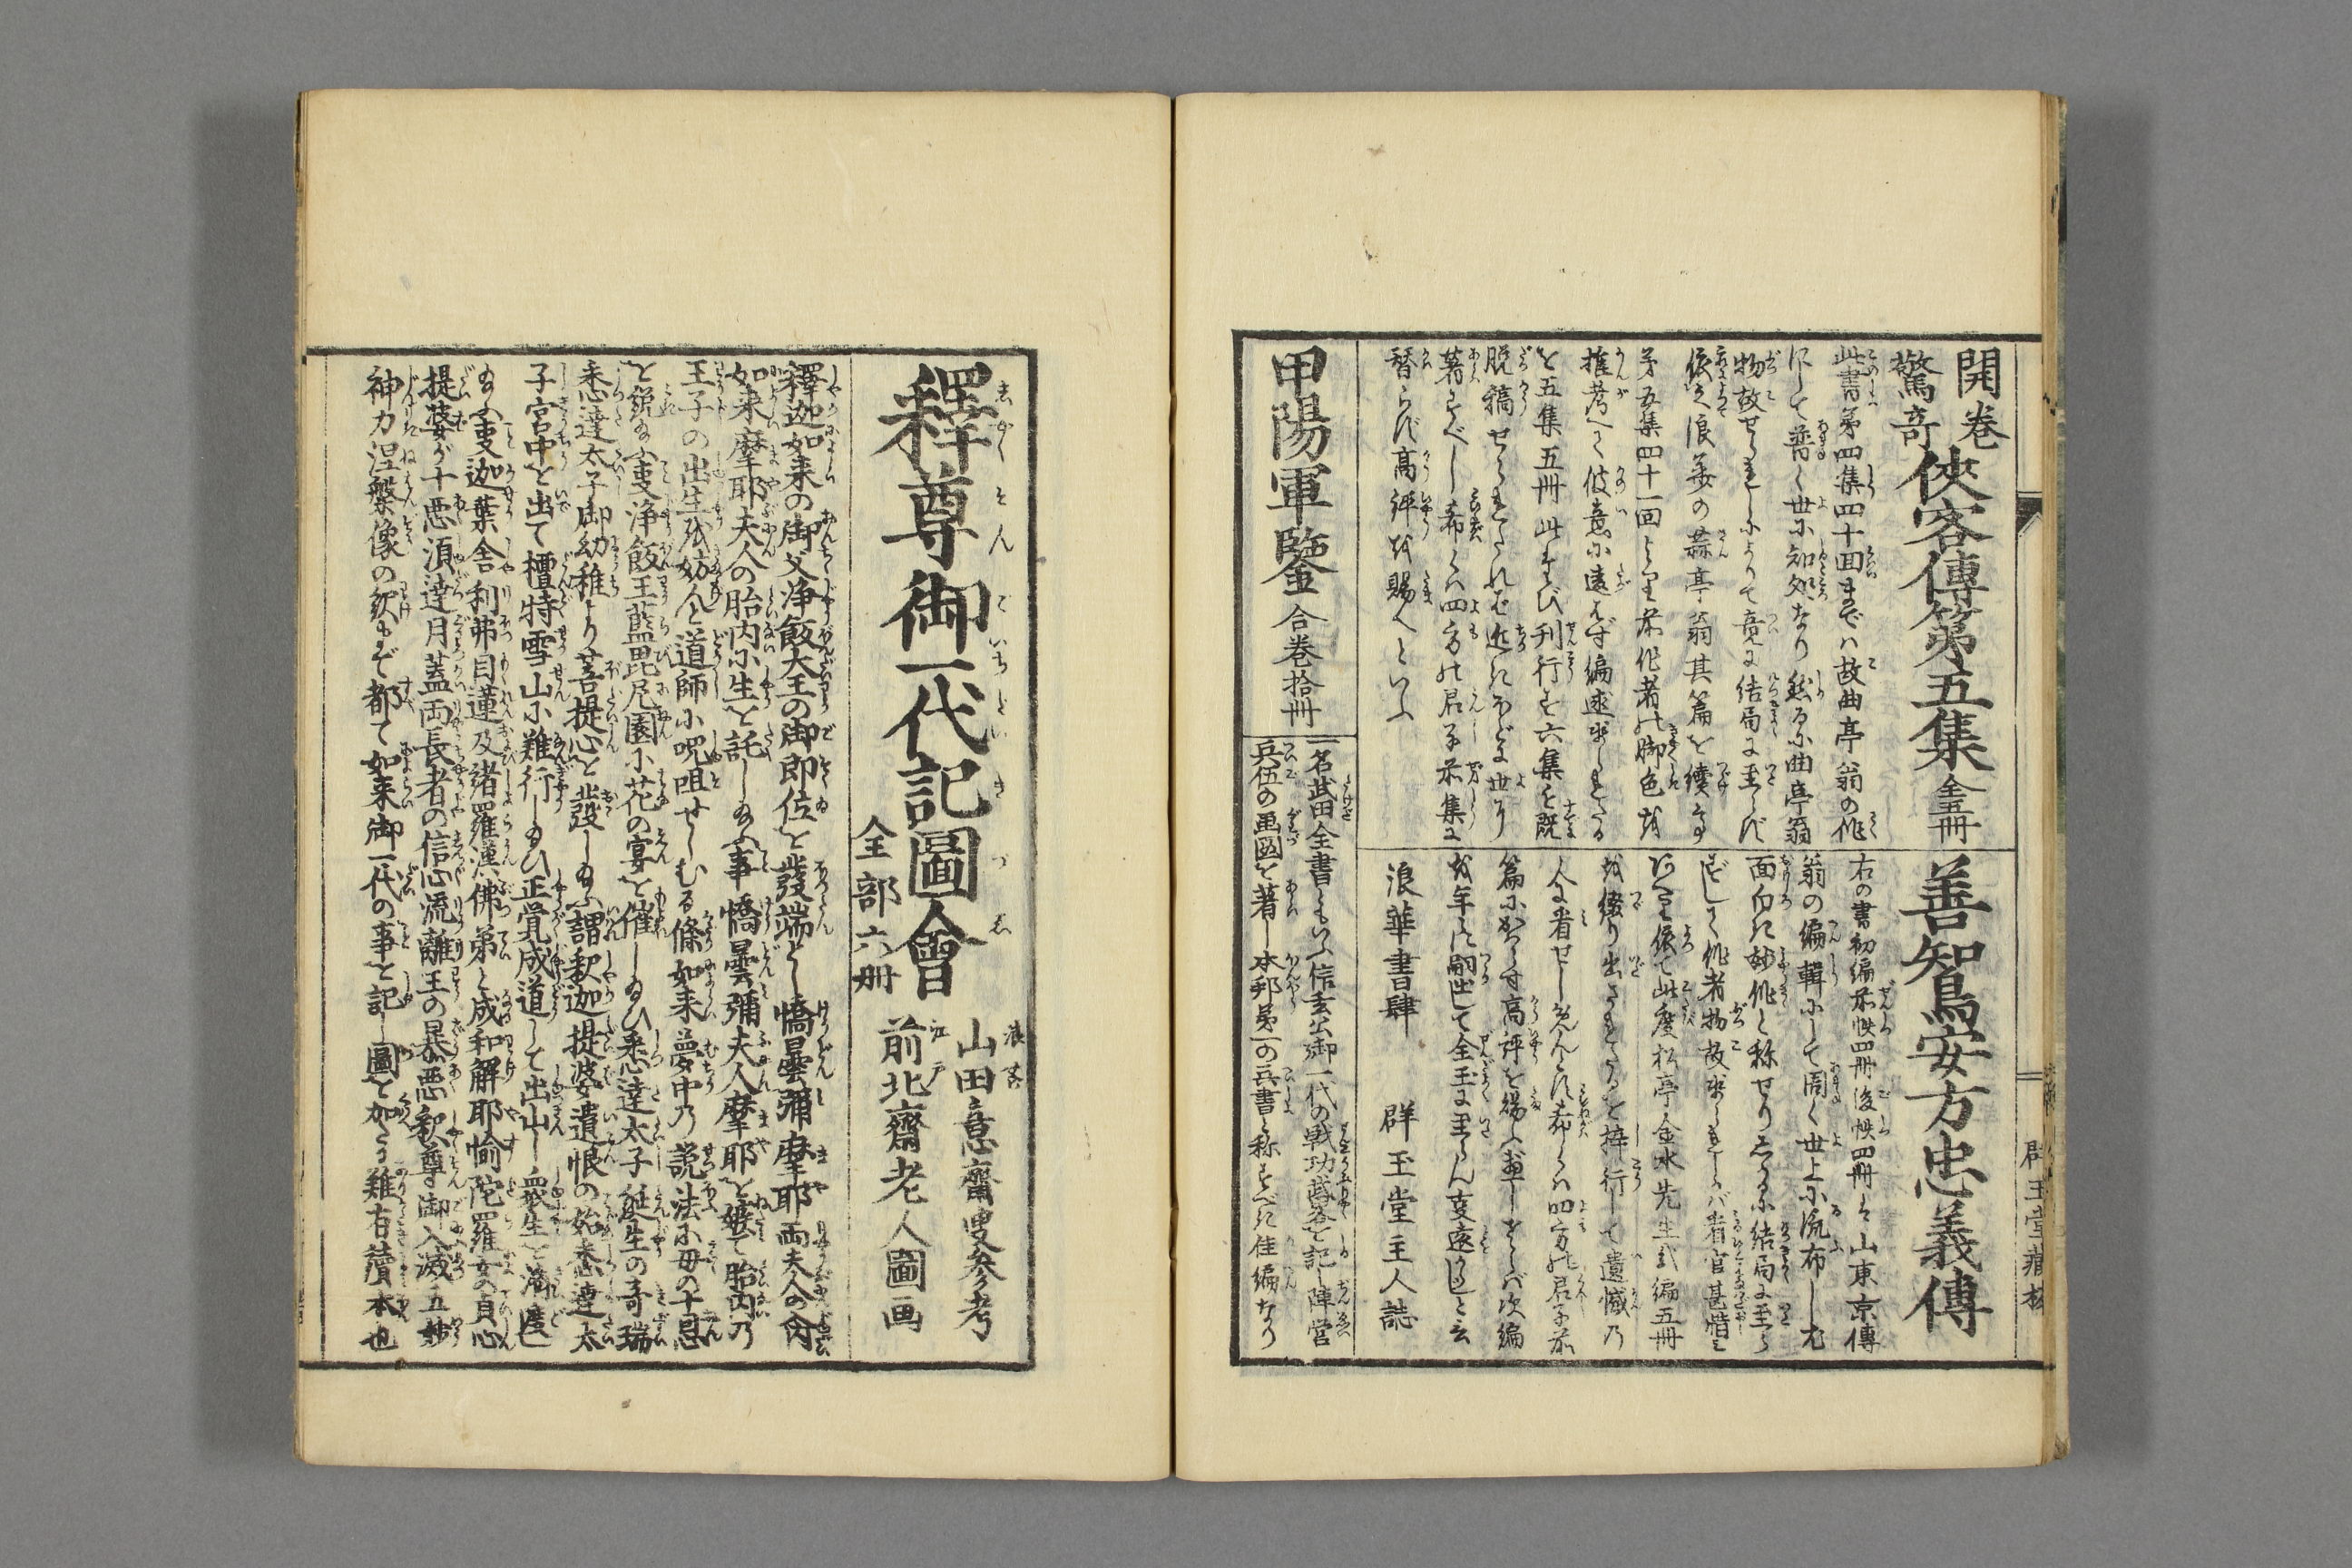 開巻
驚奇
俠客傳第五集 全五冊
此書第四集四十回までハ故曲亭翁の作
にして普く世に知処なり然るに曲亭翁
物故せられしによりて竟に結局に至らず
依之浪華の蒜亭翁其篇を續ぎ
第五集四十一回より前作者の脚色を
推考へて彼意に違はず編述せられたる
を五集五冊此たび刊行す六集も既
脱稿せられたれば近きほどに世に
著すべし希くハ四方の君子前集に
替らず高評を賜へといふ
善知鳥安方忠義傳
右の書初編前帙四冊後帙四冊ハ山東京傳
翁の編輯にして周く世上に流布し尤
面白き妙作と称せり然るに結局に至ら
ずして作者物故せられしバ看官甚惜之
依て此度松亭金水先生弐編五冊
を綴り出されたるを梓行して遺憾乃
人に看せしめんとす希くハ四方の君子前
篇に劣らず高評を賜へ
浪華書肆 群玉堂主人誌
甲陽軍鑒 合巻拾冊
一名武田全書ともいふ信玄公御一代の戦功譽を記し陣営
兵伍の画図を著し本邦第一の兵書と称すべき佳編なり
群玉堂藏板
釋尊御一代記圖會 全部六冊
浪華 山田意齋叟参考
江戸 前北齋老人圖画
釋迦如来の御父浄飯大王の御即位を發端とし憍曇彌摩耶両夫人の内
如来摩耶夫人の胎内に生を託し給ふ事憍曇彌夫人摩耶を嫉て胎内乃
王子の出生を妨んと道師に呪咀せしむる條如来夢中乃説法に母の十恩
を説給ふ事浄飯王藍毘尼園に花の宴を催し給ひ悉達太子誕生の奇瑞
悉達太子御幼稚より菩提心を發し給ふ謂釈迦提婆遺恨の始悉達太
子宮中を出て檀特雪山に難行し給ひ正覚成道して出山し衆生を済度し
給ふ事迦葉舎利弗目蓮及諸羅漢佛弟と成和解耶愉陀羅女の貞心
提婆が十悪須達月蓋両長者の信心流離王の暴悪釈尊御入滅五妙
神力涅槃像の訳まで都て如来御一代の事を記し圖を加たる難有讀本也